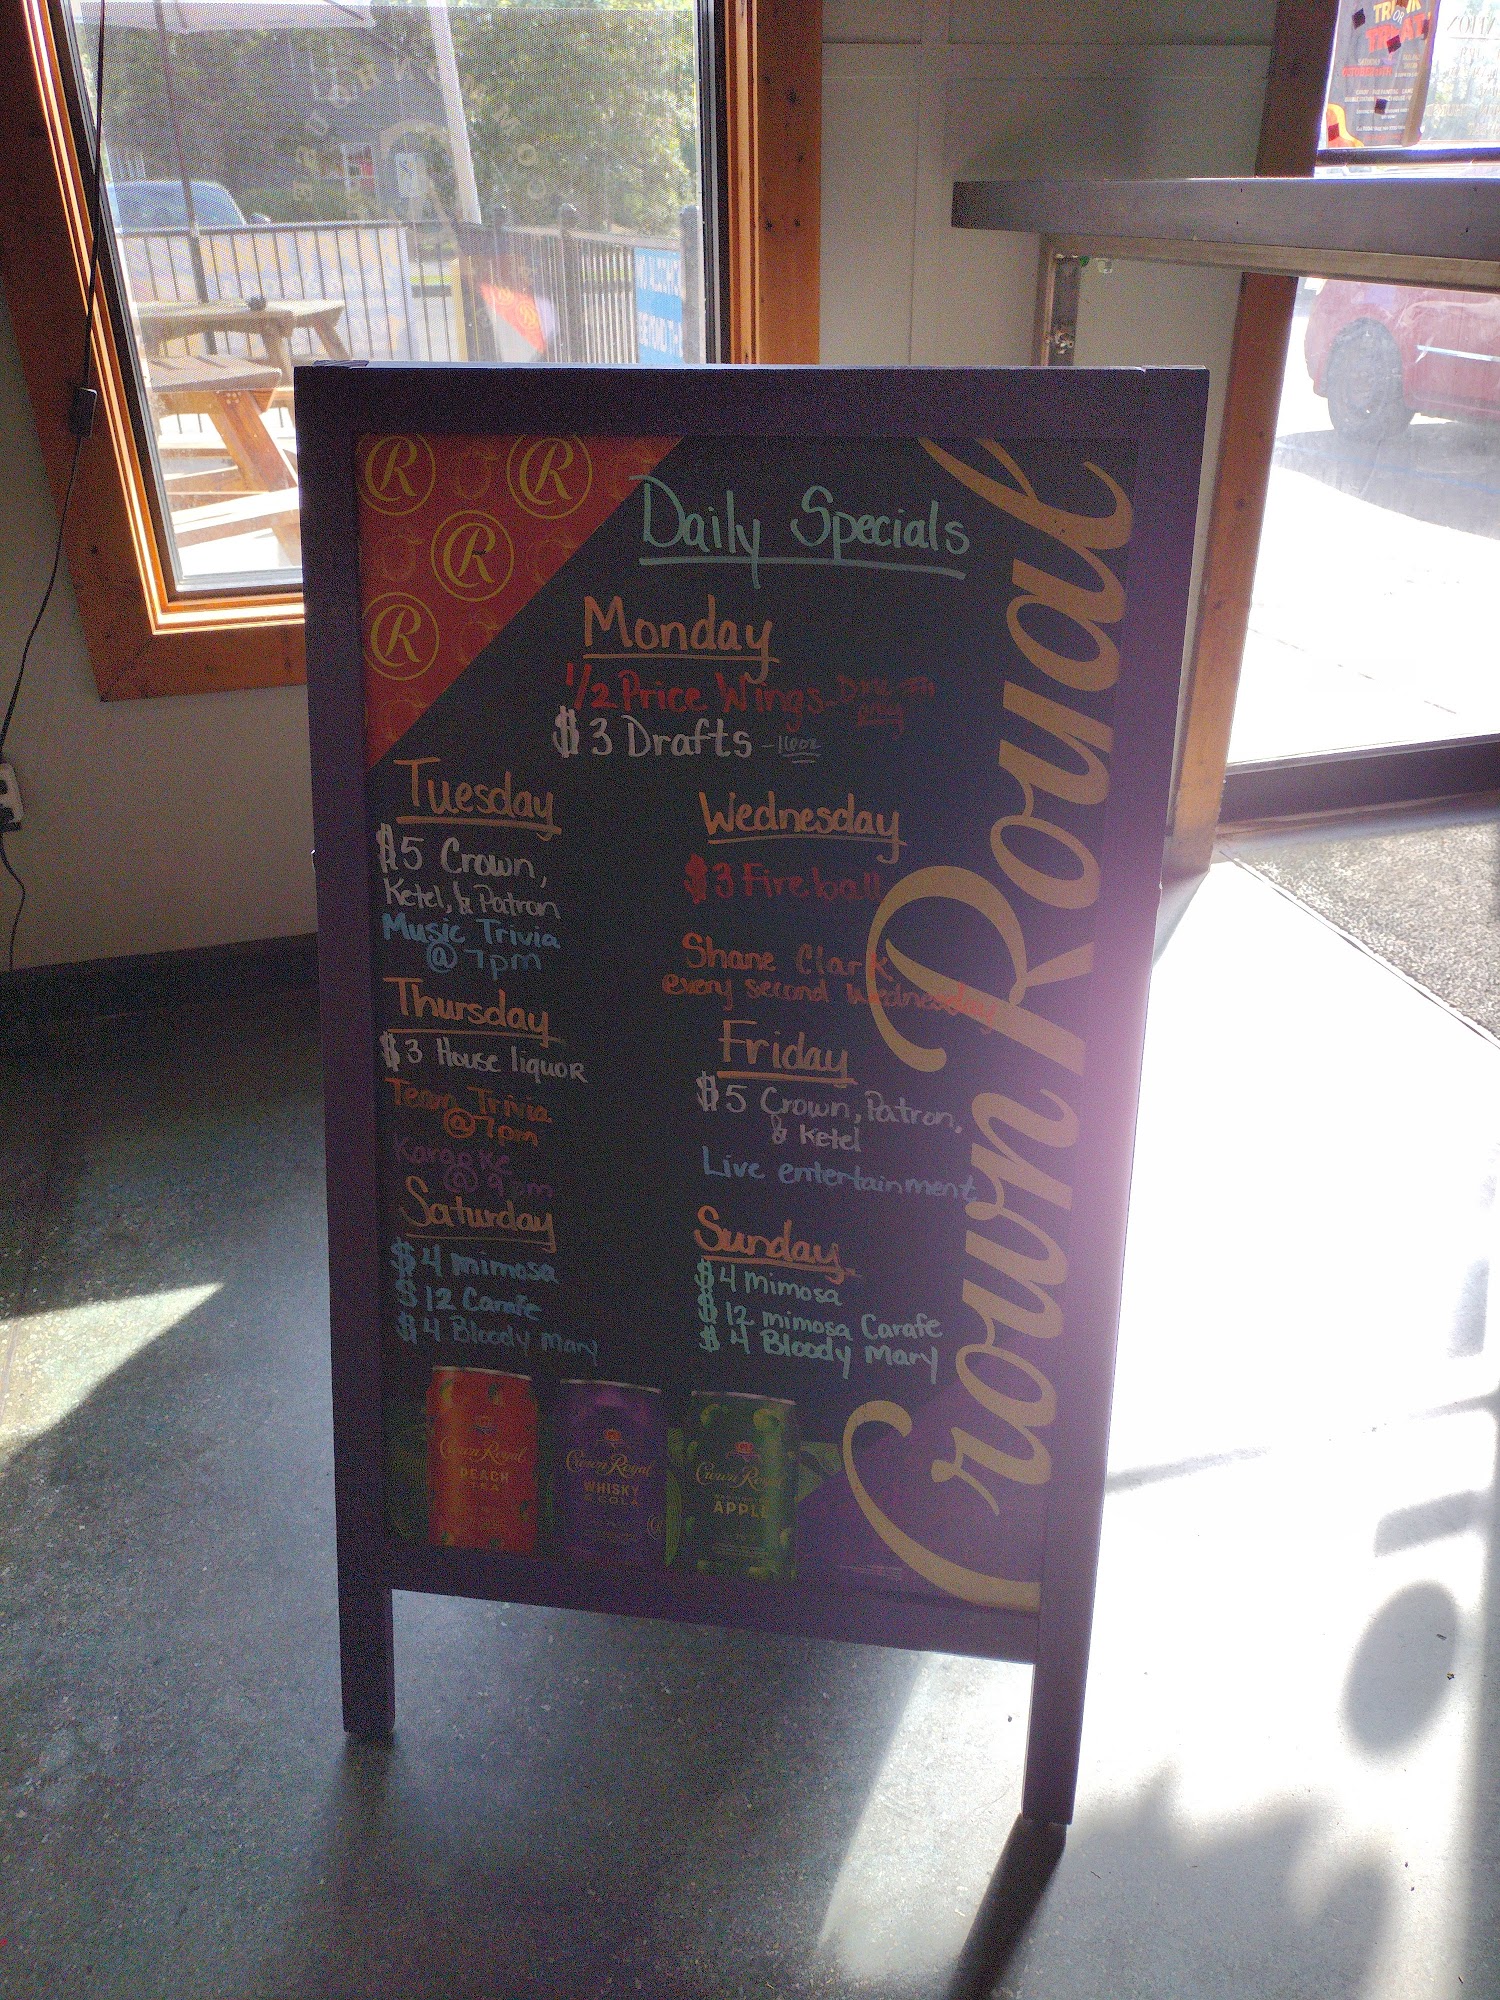 Daily Specials
Monday
1/2 Price Wings - Dine-In
only
$3 Drafts - 16oz
Tuesday
$5 Crown,
Ketel, & Patron
Music Trivia
@ 7pm
Wednesday
$3 Fireball
Shane Clark
every second Wednesday
Thursday
$3 House liquor
Team Trivia
@ 7pm
Karaoke
@ 9pm
Friday
$5 Crown, Patron,
& Ketel
Live entertainment
Saturday
$4 mimosa
$12 Carafe
$4 Bloody Mary
Sunday
$4 Mimosa
$12 mimosa Carafe
$4 Bloody Mary
Crown Royal
R
R
R
R
Crown Royal
PEACH
TEA
Crown Royal
WHISKY
& COLA
Crown Royal
APPLE
TRUNK
OR
TREAT